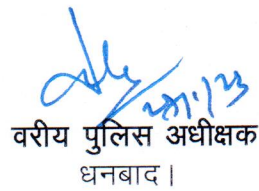 वरीय पुलिस अधीक्षक
धनबाद।